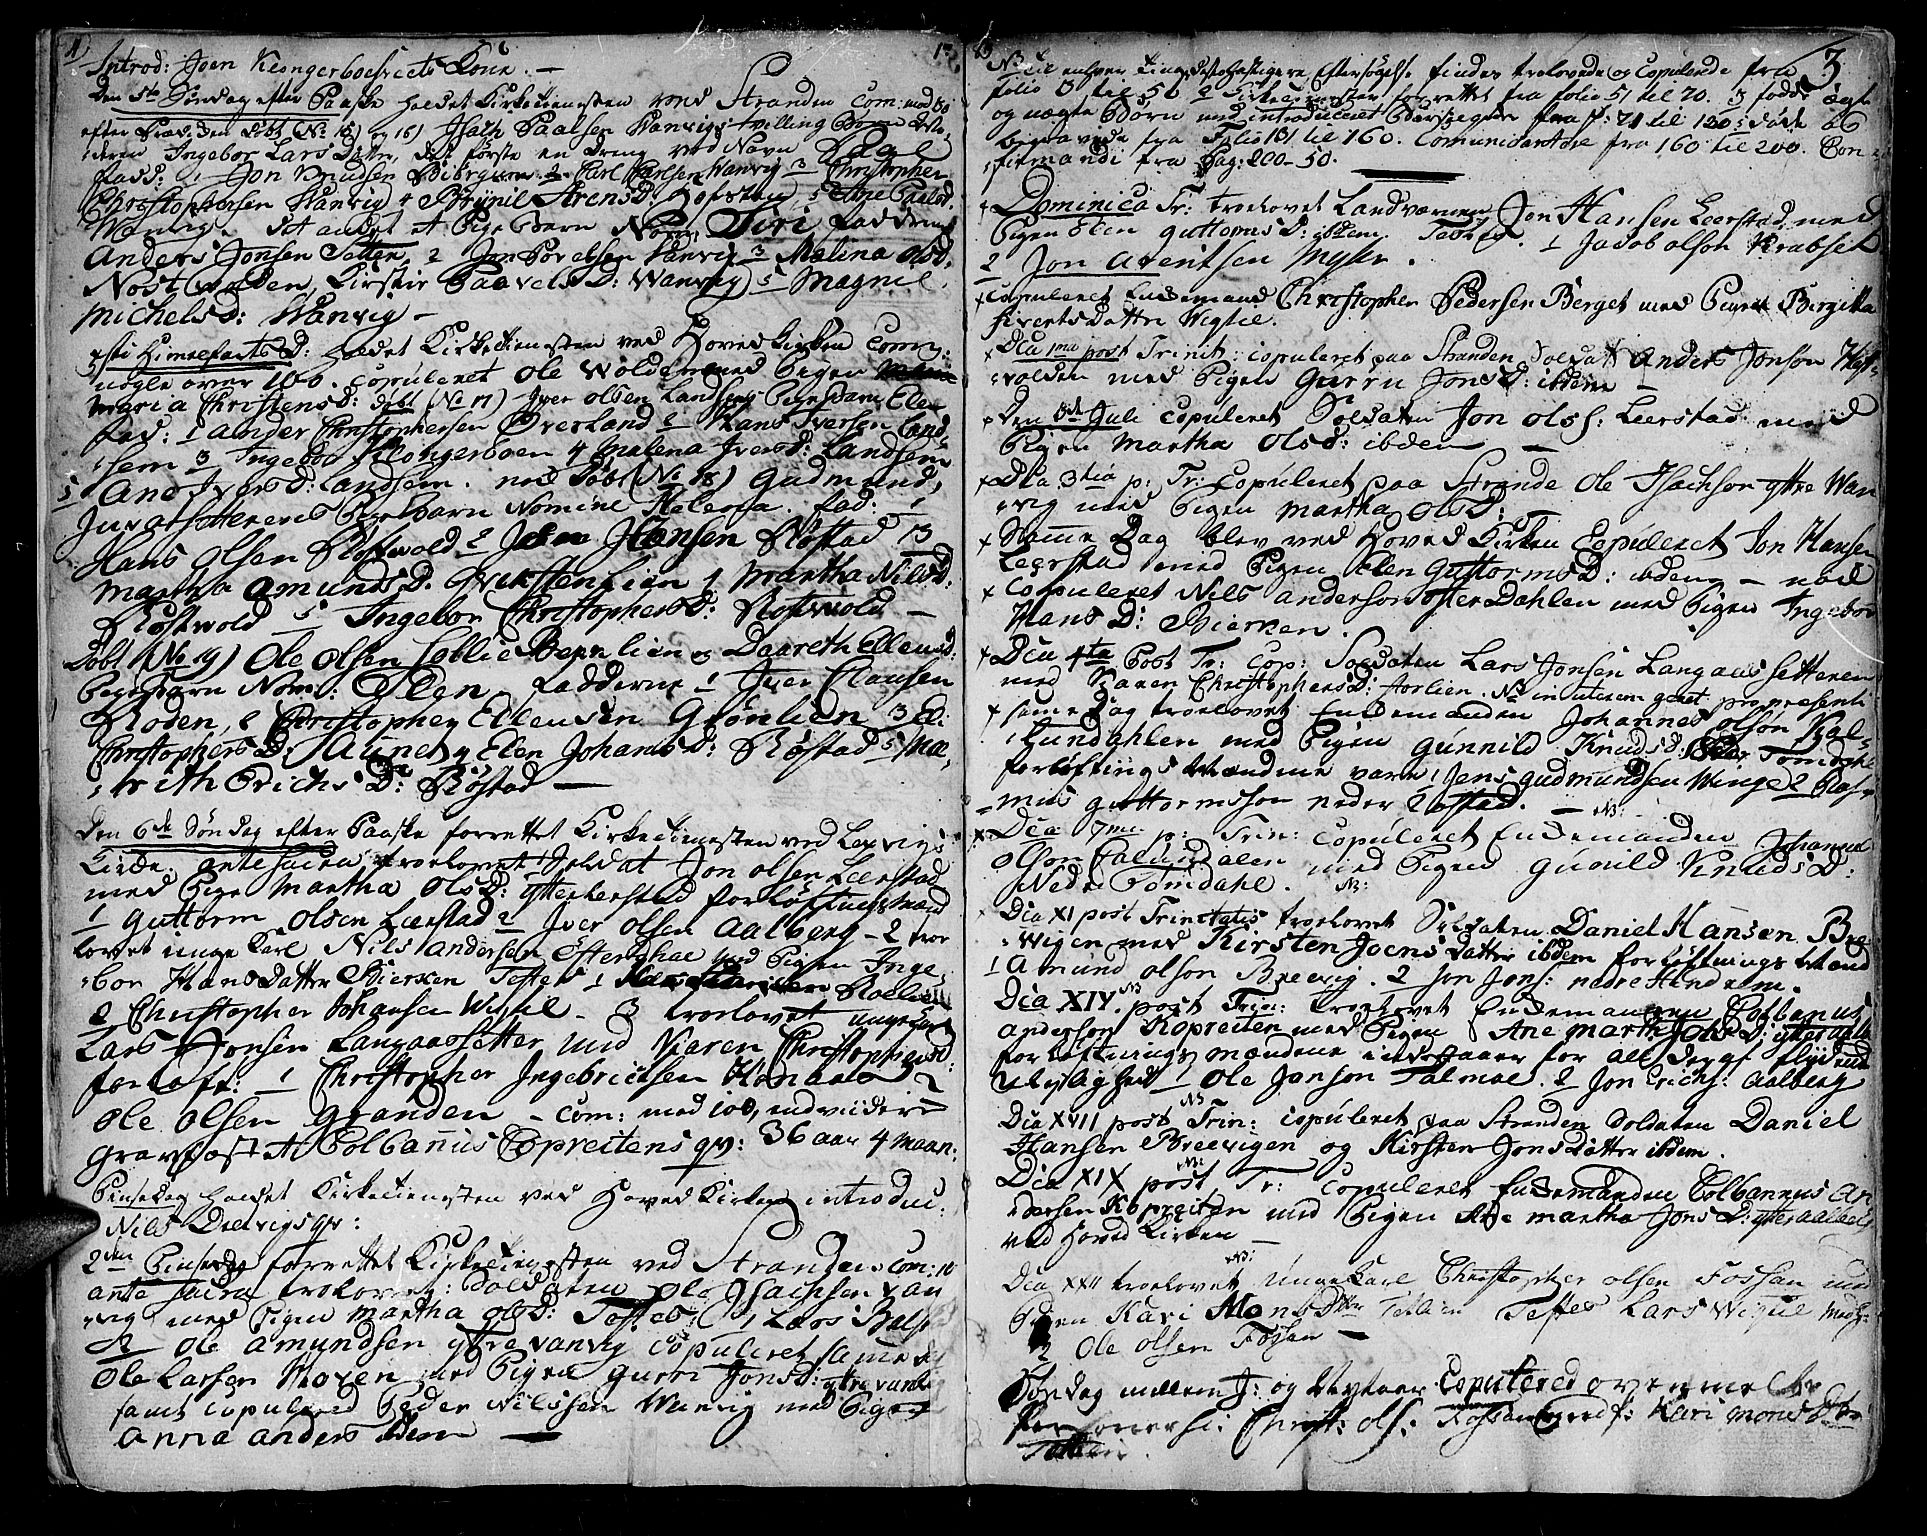 Introd: Joen Klongerboesveets Kone. —
Den 5te Søndag efter Paaske holdet Kirketienesten ved Stranden Com: mod 80
efter Præd: den Døbt (No 15) og 16) Isach Paalsen Wanvigs tvilling Børn
Ingebor Lars Datter, det første en Dreng ved Navn Paal
fadd: 1 Jon Knudsen 2 Carl Carlsen Wanvig 3 Christopher
Christophersen Wanvig 4 Brynil Arensd: Hofstad 5 Ane Paalsd
Wanvig. det andet et Pigebarn Nom: Siri fadderne
Anders Jonsen Setter, 2 Jon Wanvig 3 Malina Olsd:
Nøstwolden, Kirstie Paavelsd: Wanvig 5 Magnil
Michelsd: Wanvig —
Christi Himelfartsd: holdet Kirketienesten ved Hoved Kirken Com:
nogle over 100. Copuleret Ole Wolden med Pigen
Maria Christensd: Døbt (No 17) Iver Olsen Landsems Pigebarn Elen
fad: 1 Ander Christophersen Øverland 2 Hans Iversen Land-
sem 3 Ingebor Klongerboen 4 Malena Iversd: Landsem
5 Ane Iversd: Landsem. nock Døbt (No 18) Gudmund
Juulsetterens Pigebarn Nomine Helena. fad: 1
Hans Olsen Røstwold 2 Johan Hansen Røstad 3
Martha Amundsd. Lien 4 Martha Nilsd:
Røstwold 5 Ingebor Christophersd: Røstwold —
Døbt (No 19) Ole Olsen Lien og Daareth Ellensd:
Pigebarn Nom: Elen. fadderne 1 Iver Clausen
Moden, 2 Christopher Ellensen Grønlien 3 El:
Christophersd: Saunet 4 Elen Johansd: Røstad 5 Mar-
rith Erichsd: Røstad —
Den 6de Søndag efter Paaske forrettet Kirketienesten ved Lexvigs
Kirke. ante sacra troelovet Soldat Jon Olsen Leerstad
med Pige Martha Olsd: ytterLeerstad forløftnings Mænd
1 Guttorm Olsen Leerstad 2 Iver Olsen Aalberg — 2 troe
lovet unge Karl Nils Andersen Østerdhal med Pigen Inge-
bor Hans Datter Bierken Testes 1
2 Christopher Johansen Wigtil — 3 troelovet unge Karl
Lars Jonsen Langaassetter med Karen Christophersd:
forløft: 1 Christopher Ingebrictsen Hanaas 2
Ole Olsen Granden — Com: mod 100, endvidere
gravfæstet Colbanus Copreitens qv: 36 aar 4 maan:
Pinsedag holdet Kirketienesten ved Hoved Kirken introduc:
Nils Drelvigs qv:
2den Pinsedag forrettet Kirketienesten ved Stranden Com: 10
ante sacra troelovet: Soldaten Ole Isachsen van
vig med Pigen Martha Olsd: Testes: 1 Lars
2 Ole Amundsen ytre vanvig copuleret samme dag
Ole Larsen Moxen med Pigen Gurri Jonsd: ytre vanvig
samt copulered Peder Nilssen Wanvig med Pigen
Anna Anders ibdem —
3
NB Til enhver Tings desto hastigere Eftersøgelse findes troelovede og Copulerede fra
folio 3 til 50 2 Kirketienester forrettet fra folio 51 til 70. 3 fødde ægte
og uægte Børn med introducerede Barselqvinder fra p: 71 til 130: døde og
begravede fra Folio 131 til 160. Comunicantere fra 160 til 200. Con-
firmandi fra Pag: 200-50.
Dominica Tr: troelovet Landværnen Jon Hansen Leerstad med
Pigen Elen Guttormsd: ibdem. Testes. 1 Jacob Olson Krabset
2 Jon Arentsen Myhr.
x Copuleret Enkemand Christopher Pedersen Berget med Pigen Birgitta
Siverts datter Wigtil.
x Dia 1ma post Trinit: copuleret paa Stranden Soldat Anders Jonsøn
volden med Pigen Gurru Jonsd: ibdem —
x Den 8de Juli Copuleret Soldaten Jon Ols: Leerstad med
Pigen Martha Olsd: ibdem —
x Dia 3tia p: Tr: Copuleret paa Strande Ole Isachson ytre Wan
vig med Pigen Martha Olsd: —
x Samme Dag blev ved Hoved Kirken Copuleret Jon Hansen
Leerstad med Pigen Elen Guttormsd: ibdem — nock
x Copuleret Nils Anderson ØsterDahlen med Pigen Ingebor
Hans D: Bierken.
x Dia 4ta Post Tr: Cop: Soldaten Lars Jonsen Langaassetteren
med Karen Christophersd: Aorlien.
x samme dag troelovet Enkemanden Johannes Olson Kal-
lundahlen med Pigen Gunnild Knudsd: Neder Tomdahl
forløftnings Mændene vare 1 Jens Gudmundsen Winge 2 Ras-
mus Guttormsson neder Røstad. — NB:
x Dia 7ma p: Trin: Copuleret Enkemanden Johannes
Olson Calundalen med Pigen Gunild Knudsd:
Nedre Tomdahl. NB:
x Dia XI post Trinitatis troelovet Soldaten Daniel Hansen Bre-
wigen med Kirsten Joens datter ibdem forløftnings Mænd
1 Amund Olson Breevig. 2 Jon Jons: nedre Hindrem.
Dia XIV post Trin: troelovet Enkemanden Colbanus
Anderson Kopreiten med Pigen Ane Martha Jonsd: ytter Aalb
forløftnings mændene indestaaer for all deraf flydende
Ulejlighed 1 Ole Janson Talmoe. 2 Jon Erichs: Aalberg
NB
Dia XVII post Trin: copuleret paa Stranden Soldaten Daniel
Hansen Breevigen og Kirsten Jons datter ibdem.
NB:
Dia XIX post Tr: Copuleret Enkemanden Colbannus An
dersen Kopreiten med Pigen Ane Martha Jons D: ytter Aalberg
ved Hoved Kirken —
NB:
Dia XXII troelovet Unge Karl Christopher Olsen Fossan med
Pigen Kari Mons Dtter Testes Lars Wigtil
2 Ole Olsen Fossan —
Søndag mellem J: og Nytaar Copulered ovenmelte
Personer: Christ: Ols: Fossan og Kari Mons Dtr